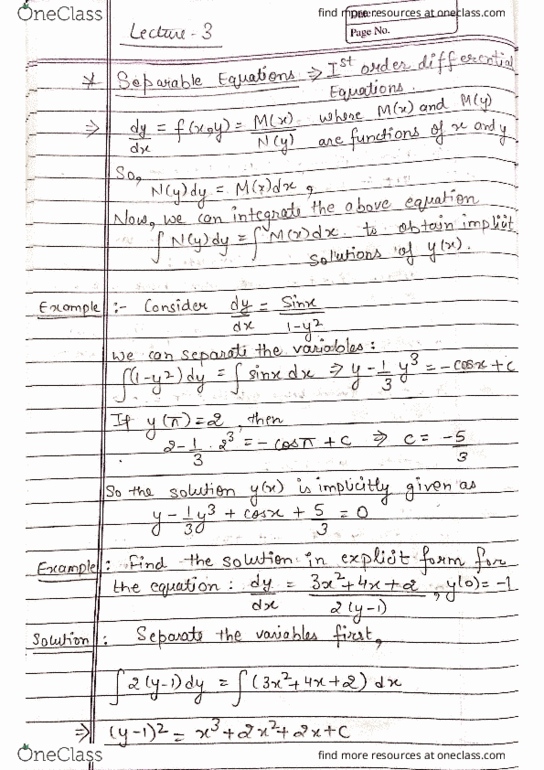 OneClass
find more resources at oneclass.com
Page No.
Lecture - 3
* Separable Equations ⇒ Ist order differential
Equations.
⇒ dy/dx = f(x,y) = M(x)/N(y) where M(x) and M(y)
are functions of x and y
So,
N(y)dy = M(x)dx,
Now, we can integrate the above equation
∫N(y)dy = ∫M(x)dx to obtain implicit
solutions of y(x).
Example :- Consider dy/dx = Sinx/1-y²
we can separate the variables:
∫(1-y²)dy = ∫sinx dx ⇒ y - 1/3 y³ = -cosx + c
If y(π) = 2, then
2 - 1/3 · 2³ = - cosπ + c ⇒ c = -5/3
So the solution y(x) is implicitly given as
y - 1/3 y³ + cosx + 5/3 = 0
Example : Find the solution in explicit form for
the equation : dy/dx = 3x²+4x+2/2(y-1), y(0) = -1
Solution : Separate the variables first,
∫2(y-1)dy = ∫(3x²+4x+2) dx
⇒ (y-1)² = x³ + 2x² + 2x + c
OneClass
find more resources at oneclass.com